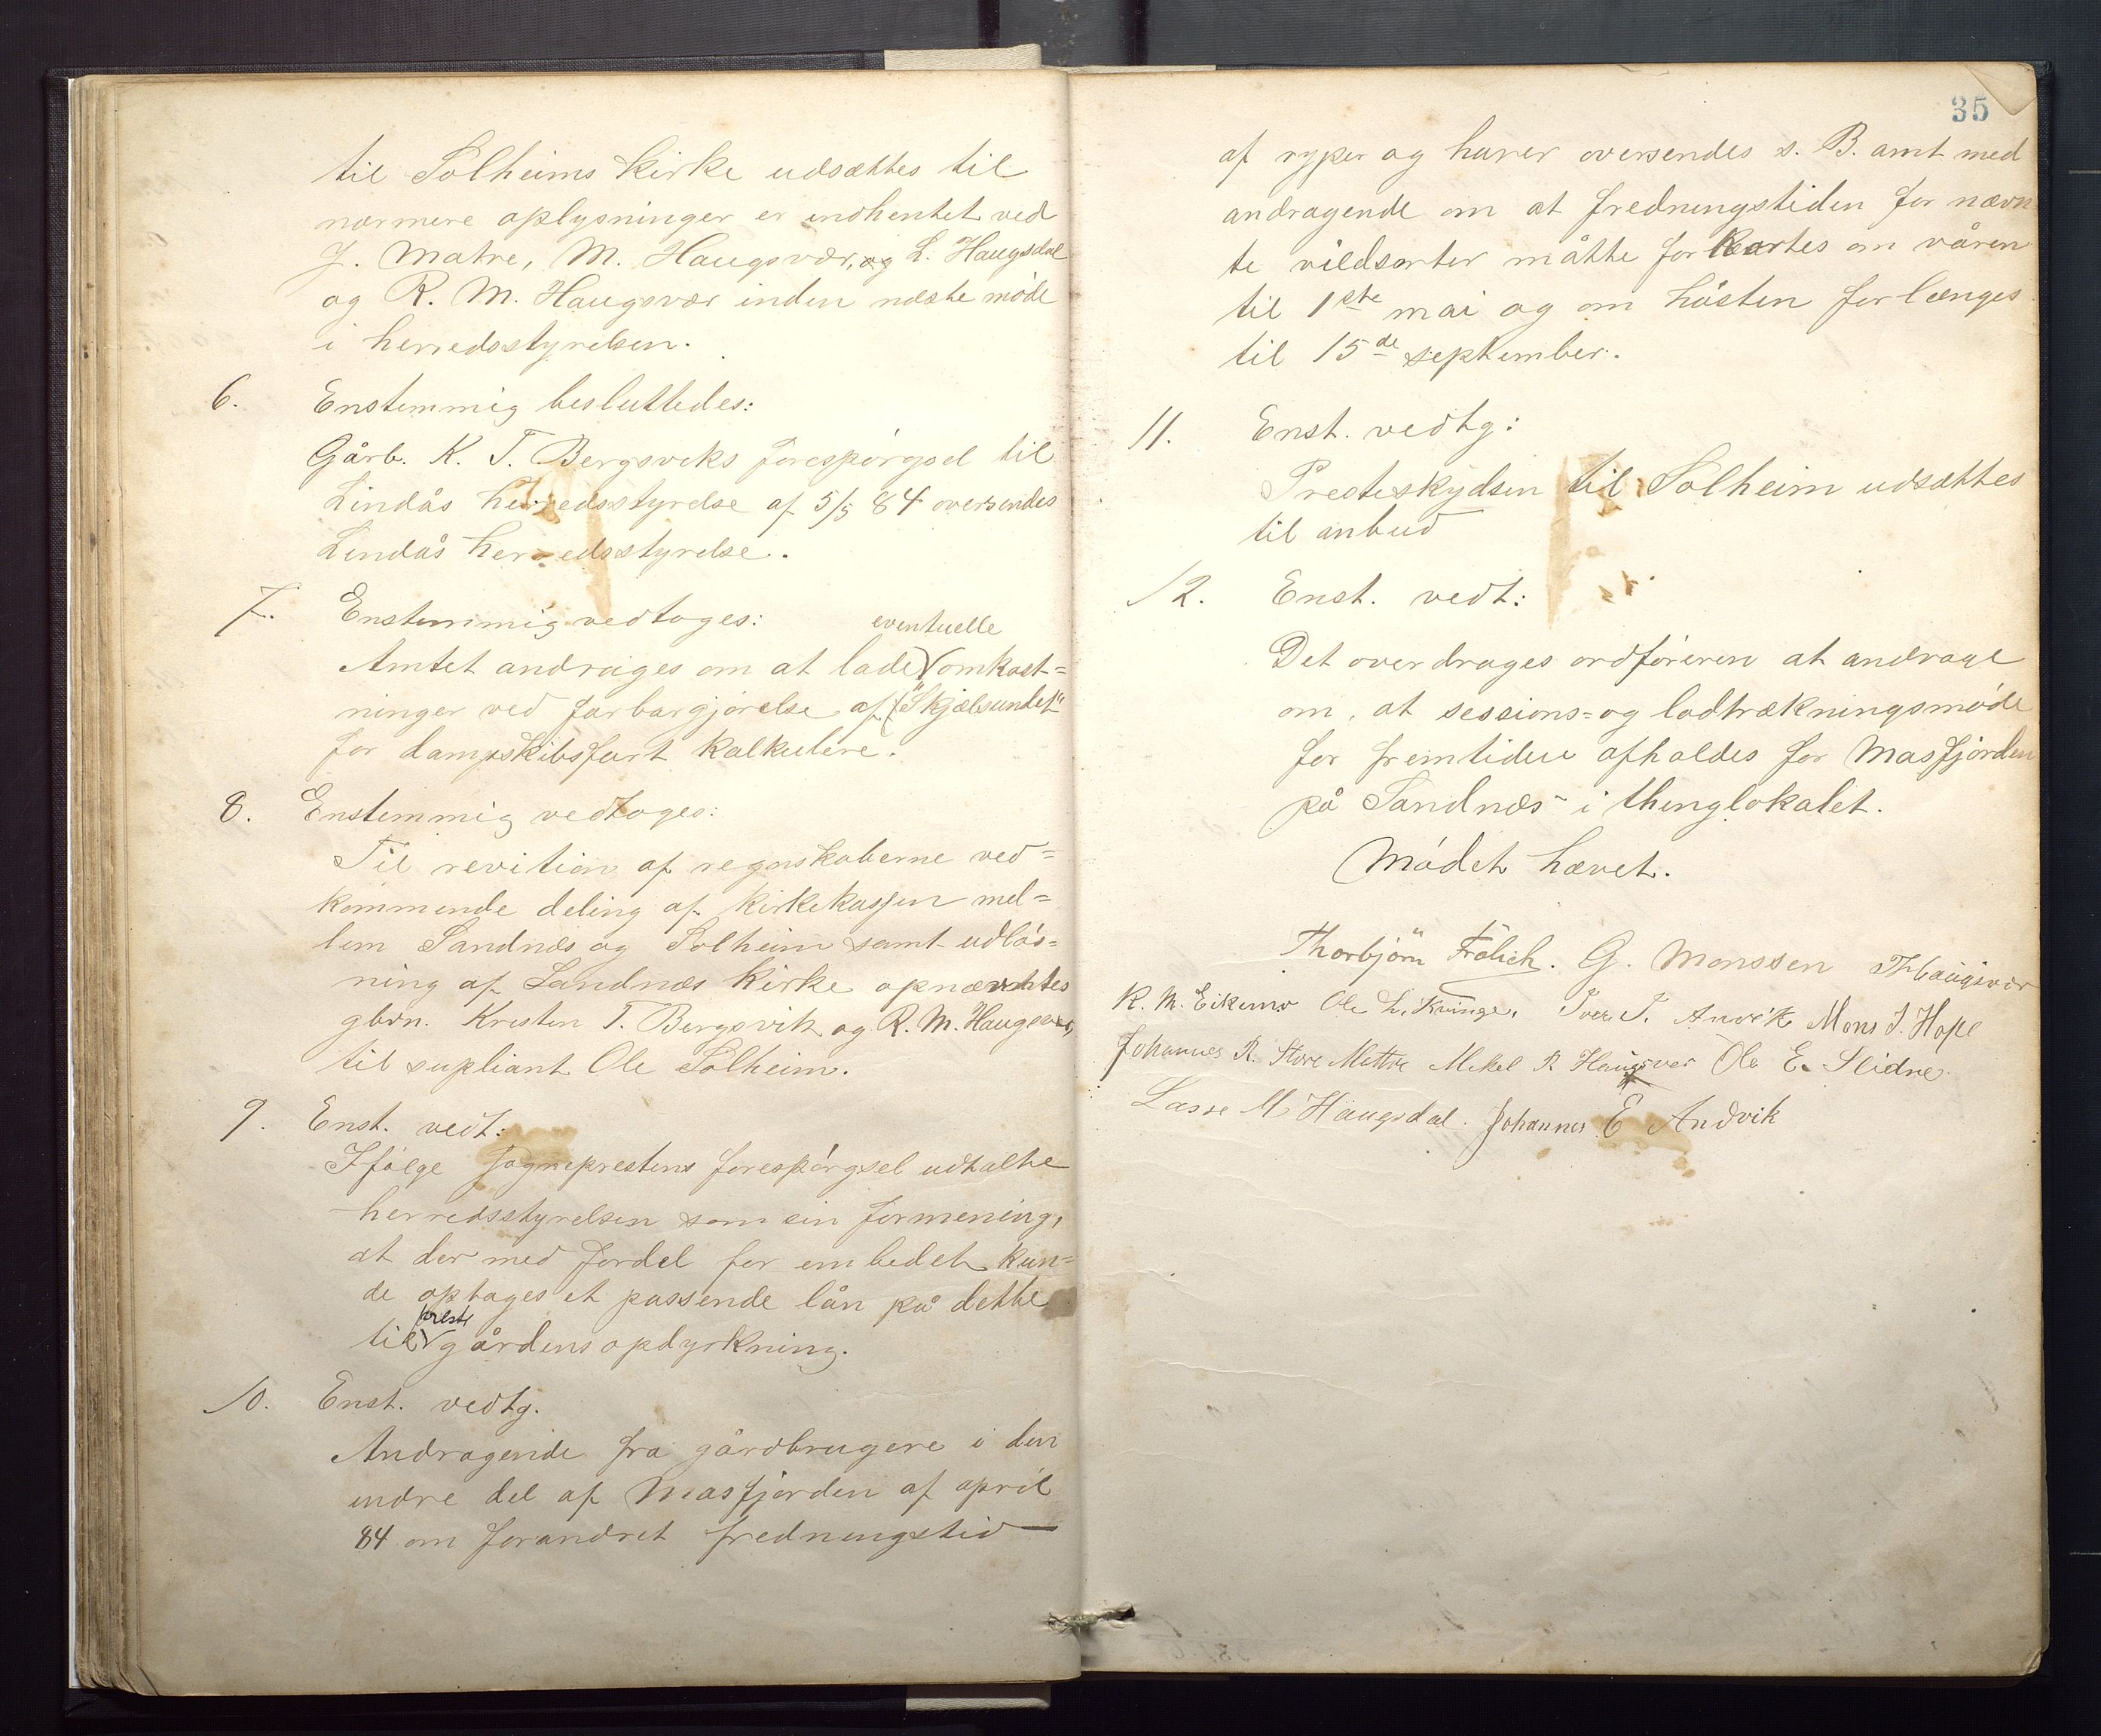 til Solheims kirke udsættes til
nærmere oplysninger er indhentet ved
J. Matre, M. Haugsvær, og L. Haugsdal
og R. M. Haugsvær inden næste möde
i herredsstyrelsen.
6. Enstemmig besluttedes:
Gårb. K. T. Bergsviks forespörgsel til
Lindås herredsstyrelse af 5/5 84 oversendes
Lindås herredsstyrelse.
7. Enstemmig vedtoges:
eventuelle
Amtet andrages om at lade omkost=
ninger ved farbargjörelse af "Skjælsundet"
for dampskibsfart kalkulere.
8. Enstemmig vedtoges:
Til revition af regnskaberne ved=
kommende deling af kirkekassen mel=
lem Sandnæs og Solheim samt udlös=
ning af Sandnæs kirke opnævntes
gbrn. Kristen T. Bergsvik og R. M. Haugsvær,
til supliant Ole Solheim.
9. Enst. vedt:
Ifölge sogneprestens forespörgsel udtalte
herredsstyrelsen som sin formening,
at der med fordel for embedet kun=
de optages et passende lån på dette
preste
til gårdens opdyrkning.
10. Enst. vedtg.
Andragende fra gårdbrugere i den
indre del af Masfjorden af april
84 om forandret fredningstid
35
af ryper og harer oversendes s. B. amt med
andragende om at fredningstiden for nævn
te vildsorter måtte forkortes om våren
til 1ste mai og om hösten forlænges
til 15de september.
11. Enst. vedtg:
Presteskydsen til Solheim udsættes
til anbud
12. Enst. vedt:
Det overdrages ordföreren at andrage
om, at sessions= og lodtrækningsmöde
for fremtiden afholdes for Masfjorden
på Sandnæs i thinglokalet.
Mödet hævet.
Thorbjörn Frölich. G. Monssen Haugsvær
R. M. Eikemo Ole L. Kvinge. Iver T. Anvik Mons I. Hope
Johannes R. Store Mattre Mikel R Haugsvær Ole E. Sleidne
Lasse M Haugsdal. Johannes E Andvik